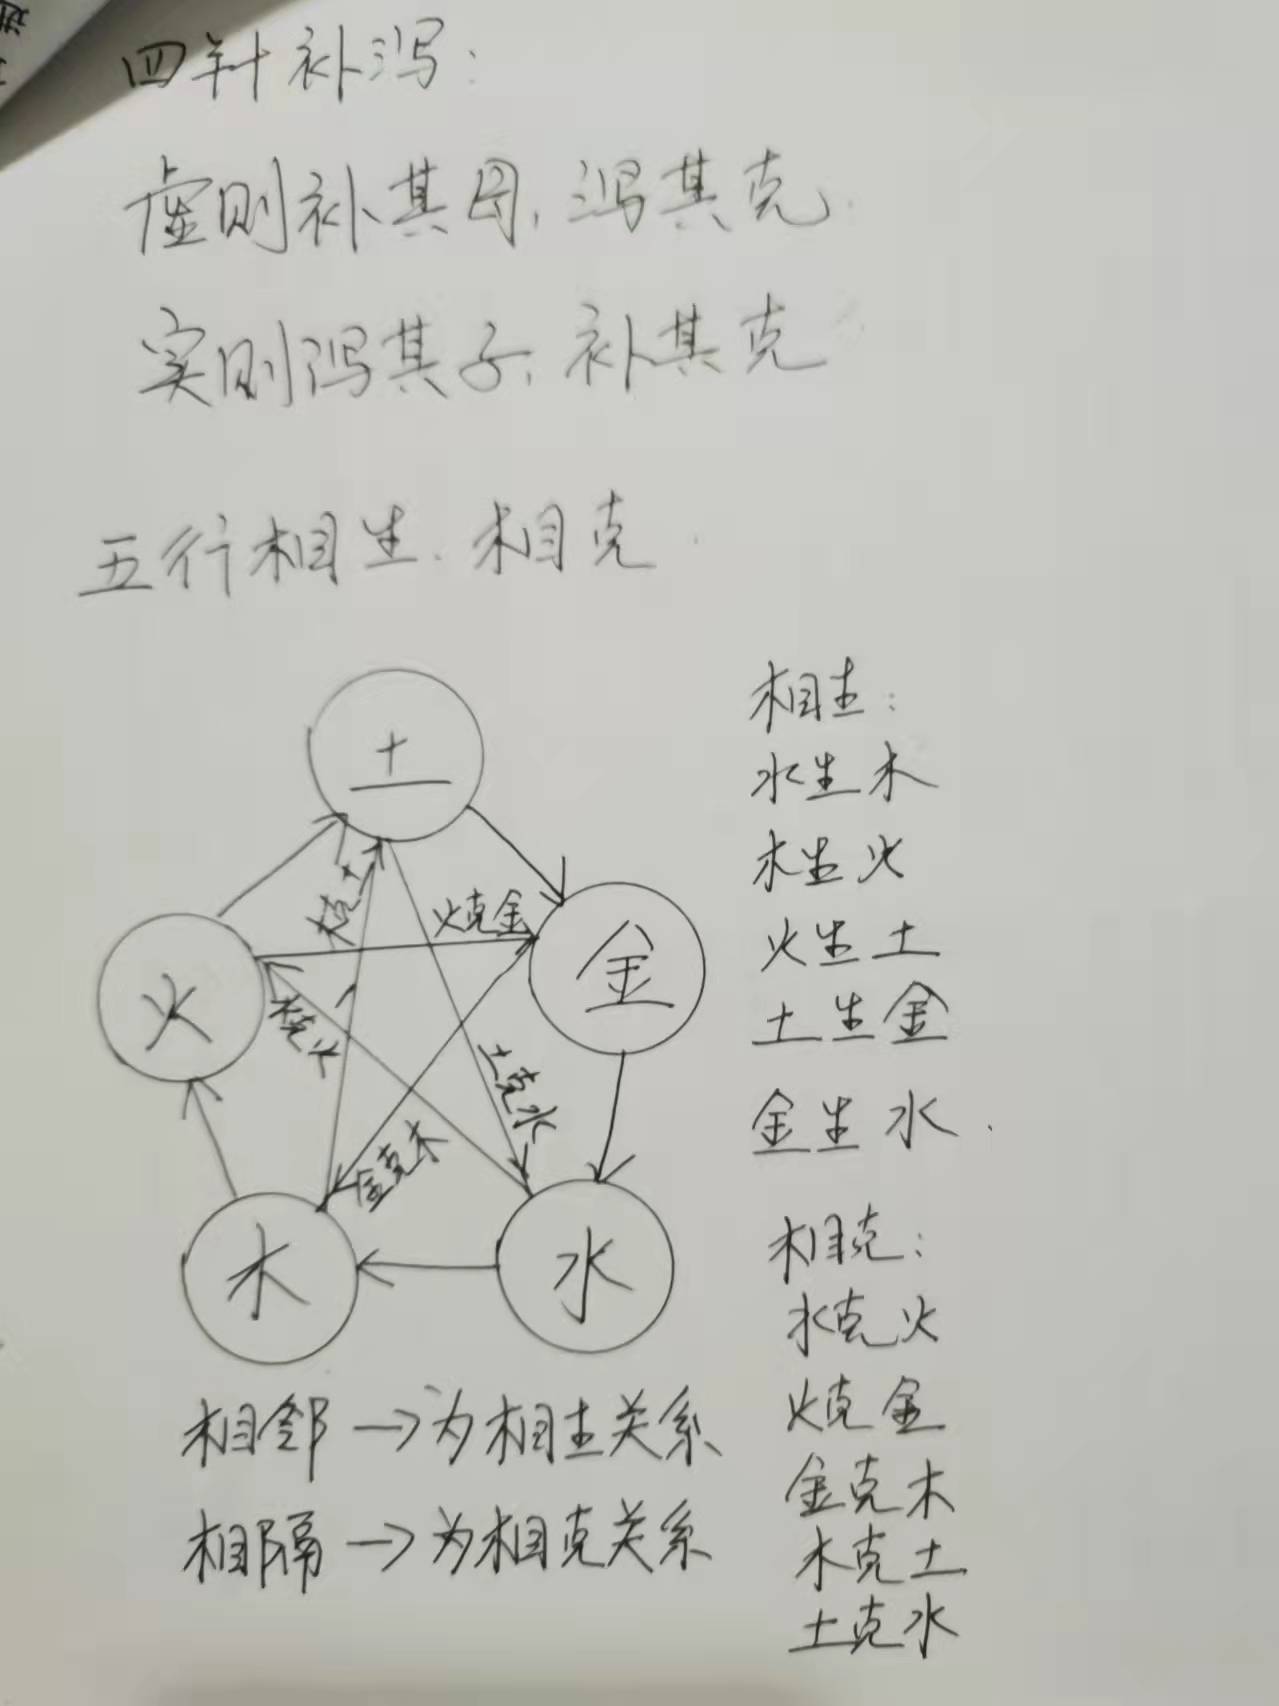 四针补泻：
虚则补其母，泻其克．
实则泻其子，补其克
五行相生．相克．
土
金
水
木
火
木克土
火克金
水克火
土克水
金克木
相邻→为相生关系
相隔→为相克关系
相生：
水生木
木生火
火生土
土生金
金生水．
相克：
水克火
火克金
金克木
木克土
土克水